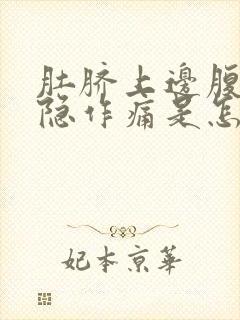 肚脐上邊腹
隐作痛是怎
妃本京華